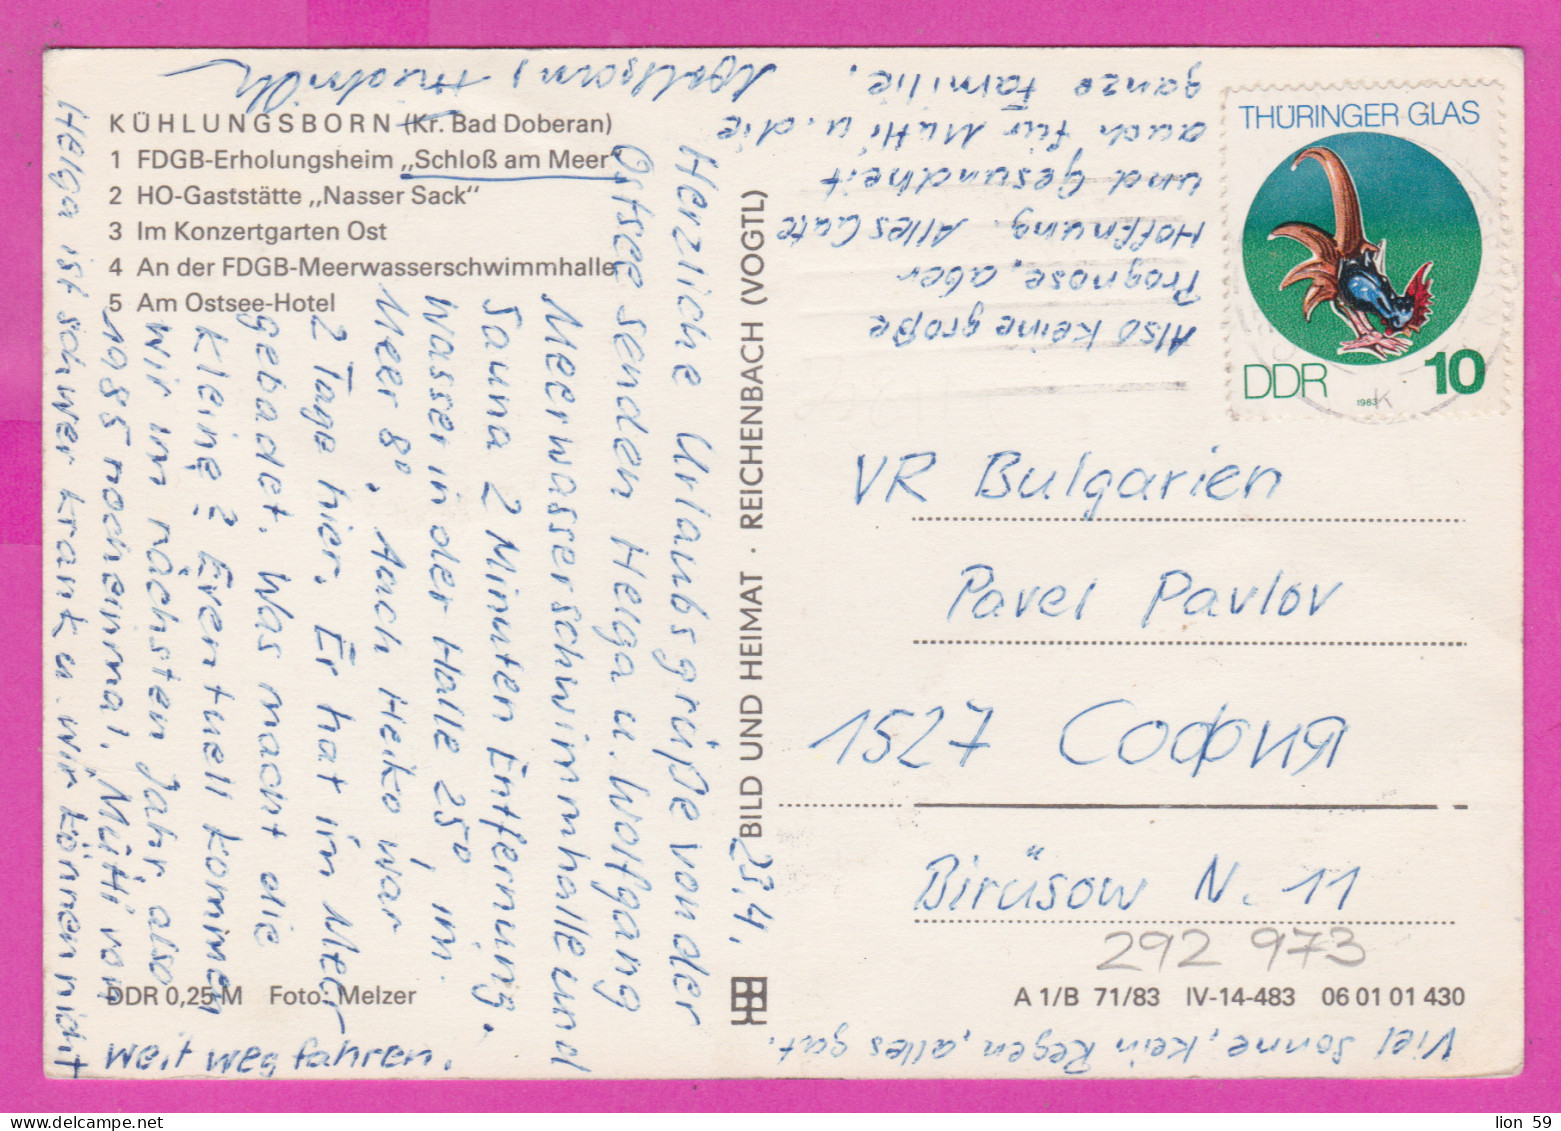 KÜHLUNGSBORN (Kr. Bad Doberan)
1 FDGB-Erholungsheim „Schloß am Meer“
2 HO-Gaststätte „Nasser Sack“
3 Im Konzertgarten Ost
4 An der FDGB-Meerwasserschwimmhalle
5 Am Ostsee-Hotel
23.4.
Herzliche Urlaubsgrüße von der
Ostsee senden Helga u. Wolfgang
Meerwasserschwimmhalle und
Sauna 2 Minuten Entfernung.
Wasser in der Halle 25°, im
Meer 8°. Auch Heiko war
2 Tage hier. Er hat im Meer
gebadet. Was macht die
Kleine? Eventuell kommen
wir im nächsten Jahr, also
1985 nocheinmal. Mutti von
Helga ist schwer krank u. wir können nicht
weit weg fahren.
Also keine große
Prognose, aber
Hoffnung. Alles Gute
und Gesundheit
auch für Mutti u. die
ganze Familie.
Viel Sonne, kein Regen, alles gut.
BILD UND HEIMAT · REICHENBACH (VOGTL)
THÜRINGER GLAS
DDR 10
1983
VR Bulgarien
Pavel Pavlov
1527 София
Birüsow N. 11
292 973
DDR 0,25 M Foto: Melzer
A 1/B 71/83 IV-14-483 06 01 01 430
lion 59